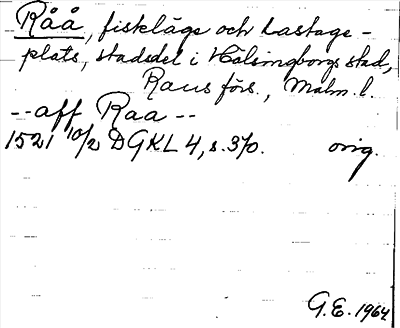 Råå, fiskläge och lastage-
plats, stadsdel i Hälsingborgs stad,
Raus förs., Malm. l.
-- aff Raa --
1521 10/2 DGKL 4, s. 370. orig.
G.E. 1964